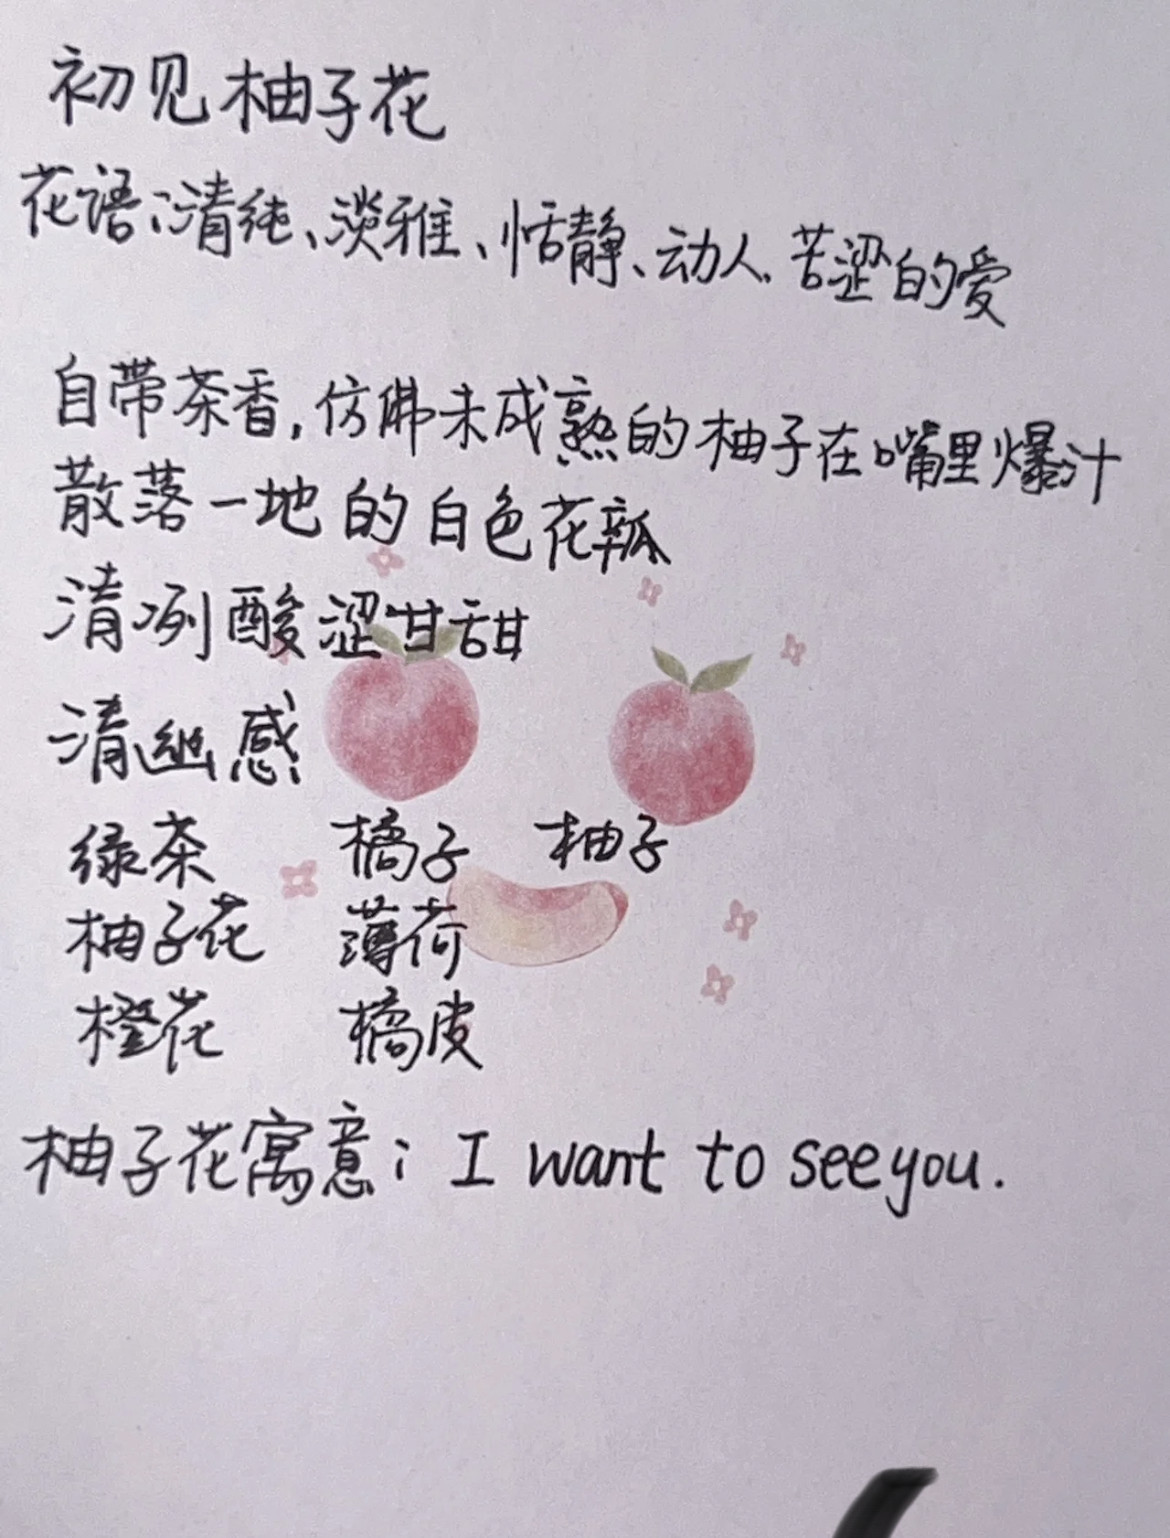 初见柚子花
花语：清纯、淡雅、恬静、动人、苦涩的爱
自带茶香，仿佛未成熟的柚子在嘴里爆汁
散落一地的白色花瓣
清冽酸涩甘甜
清幽感
绿茶 橘子 柚子
柚子花 薄荷
橙花 橘皮
柚子花寓意：I want to see you.